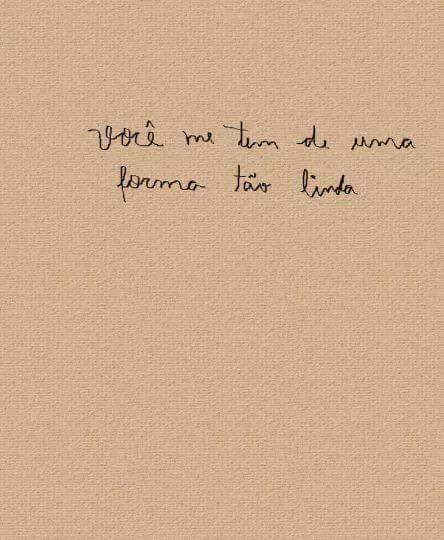 você me tem de uma
forma tão linda